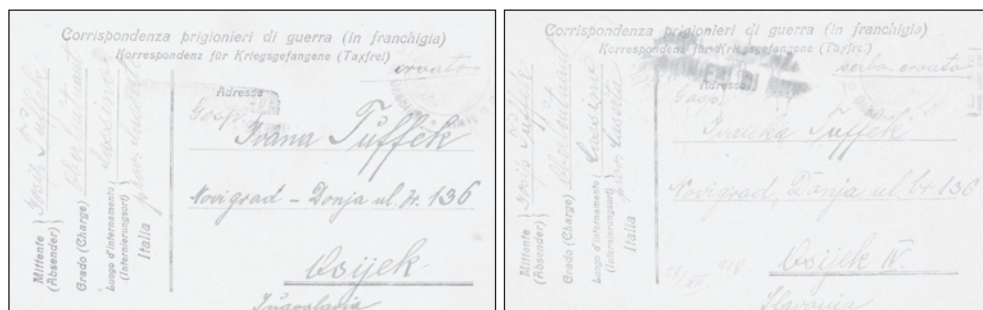 Corrispondenza prigionieri di guerra (in franchigia)
Korrespondenz für Kriegsgefangene (Taxfrei)
croato
Adresse
Gospr.
Ivana Tuffek
Novigrad - Donja ul. br. 136
Osijek
Jugoslavia
Mittente (Absender) Josip Tuffek
Grado (Charge) Oberleutnant
Luogo d'internamento (Internierungsort) Cassino
prov. Caserta
Italia
Corrispondenza prigionieri di guerra (in franchigia)
Korrespondenz für Kriegsgefangene (Taxfrei)
serbo-croato
Adresse
Ivanka Tuffek
Novigrad, Donja ul. br. 136
Osijek IV.
Slavonia
Mittente (Absender) Josip Tuffek
Grado (Charge) Oberleutnant
Luogo d'internamento (Internierungsort) Cassino
prov. Caserta
Italia